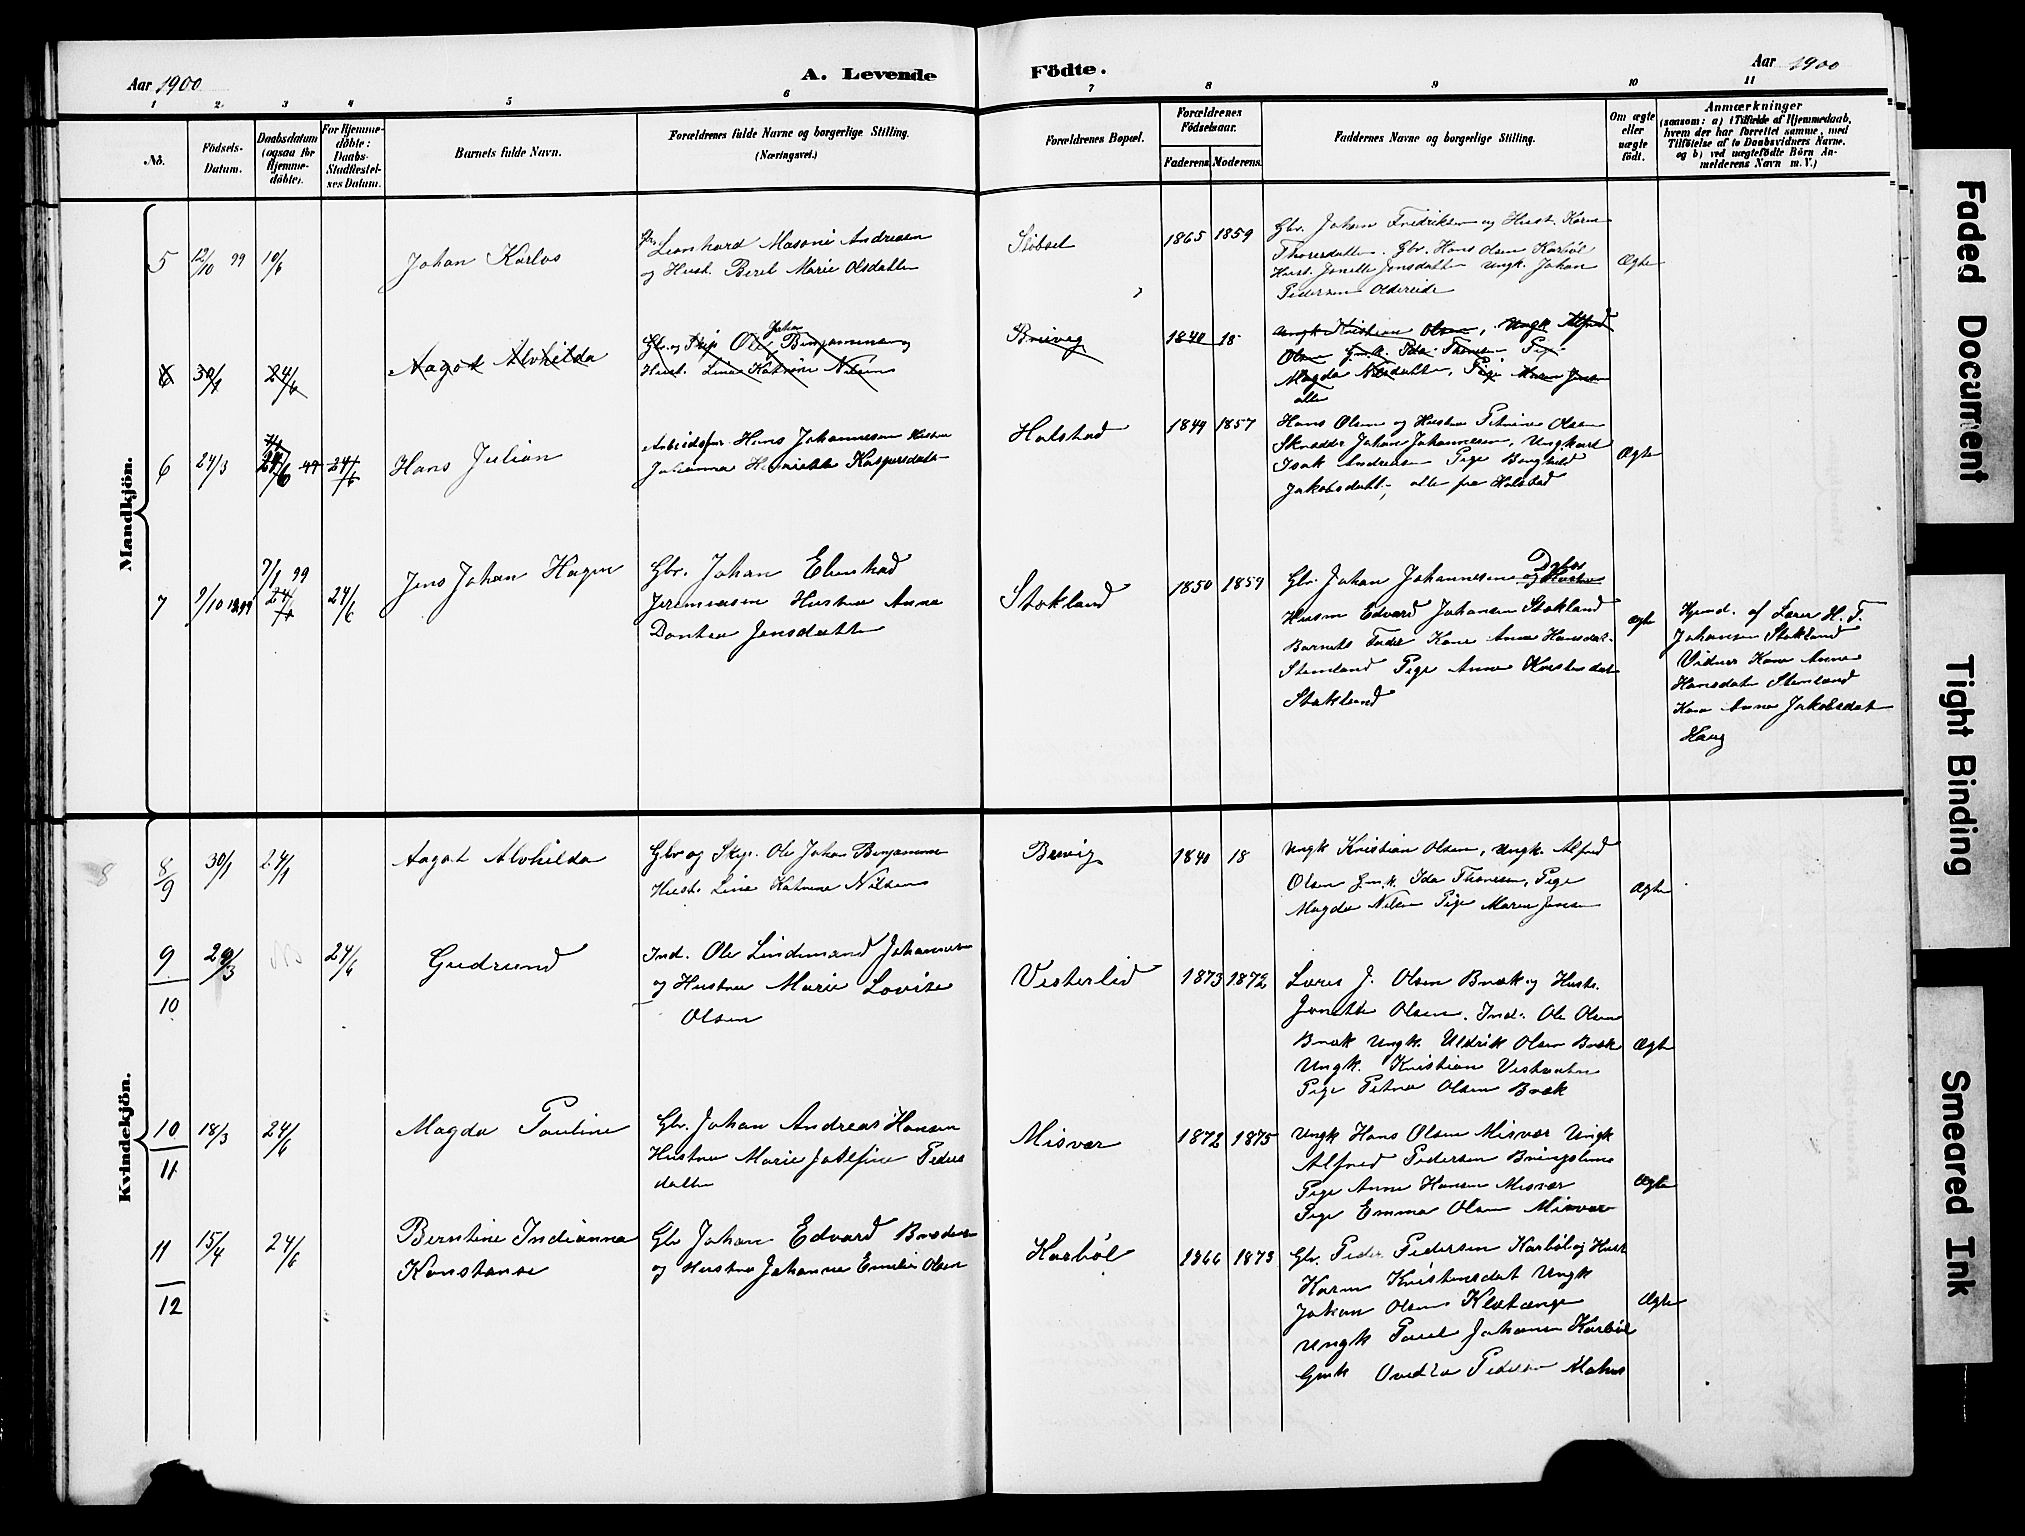 Aar 1900
A. Levende
Födte.
Aar 1900
1 2 3 4 5 6 7 8 9 10 11
No.
Födsels-Datum.
Daabsdatum (ogsaa for Hjemme-döbte).
For Hjemme-döbte: Daabs-Stadfæstel-ses Datum.
Barnets fulde Navn.
Forældrenes fulde Navne og borgerlige Stilling.
(Næringsvei.)
Forældrenes Bopæl.
Forældrenes Födselsaar.
Faderens Moderens
Faddernes Navne og borgerlige Stilling.
Om ægte eller uægte födt.
Anmærkninger
(saasom: a) i Tilfælde af Hjemmedaab,
hvem der har forrettet samme, med
Tilföielse af to Daabsvidners Navne.
og b) ved uægtefödte Börn An-
melderens Navn m. V.)
Mandkjön.
5 12/10 99 10/6 Johan Karlos
Leonhard Masoni Andresen
og Hust. Beret Marie Olsdatter
1865 1859
Gbr. Johan Fredriksen og Hust. Karen
Thoresdatter. Gbr. Hans Olsen Karbøl
Hust. Jonette Jensdatter Ungk. Johan
Pedersen Oldereide
Ægte
6 30/1 24/6 Aagot Alvhilda
Gbr. og Skip Ole Johan Benjaminsen og
Hust. Lina Katrine Nilsen
Breivig
1840 18
Ungk Kristian Olsen, Ungk Alfred
Olsen G.m.k. Ida Thoresen Pige
Magda Nilsdatter, Pige Maren Jensen
alle
6 24/3 24/6 24/6 Hans Julian
Arbeidsfor. Hans Johannesen Hustru
Johanna Henriette Kaspersdatter
Holstad
1849 1857
Hans Olsen og Hustru Petrine Olsen
Skrædder Johan Johannesen, Ungkarl
Isak Andreasen Pige Borghild
Jakobsdatt., alle fra Holstad
Ægte
7 9/10 1899 7/1 99 24/6 Jens Johan Hagen
Gbr. Johan Ebenhad
Jeremiasen Hustru Anna
Dontea Jensdatter
Stokland
1850 1859
Gbr. Johan Johannesen og Hustru
Husm Edvard Johansen Stokland
Barnets Fader Kone Anna Hansdat.
Stemland Pige Anna Kristensdat
Stokland
Ægte
Hjemd. af Lærer H. F.
Johansen Stokland
Vidner Kone Anna
Hansdatr Stemland
Kone Anna Jakobsdat
Haug
Kvindekjön.
8
8/9 30/1 24/1 Aagot Alvhilda
Gbr og Skip. Ole Johan Benjaminsen
Hust. Lina Katrine Nilsen
Breivig
1840 18
Ungk Kristian Olsen, Ungk. Alfred
Olsen G.m.k. Ida Thoresen, Pige
Magda Nilsen Pige Maren Jensen
Ægte
9/10 29/3 24/6 Gudrund
Ind. Ole Lindemand Johannesen
og Hustru Marie Lovise
Olsen
Vesterlid
1873 1872
Lars J. Olsen Bræk og Hustr.
Jonette Olsen. Ind. Ole Olsen
Bræk Ungk. Uldrik Olsen Bræk
Ungk. Kristian Vestvatn
Pige Petra Olsen Bræk
Ægte
10/11 18/3 24/6 Magda Pauline
Gbr. Johan Andreas Hansen
Hustru Marie Josefine Peders
datter
Misvær
1872 1875
Ungk Hans Olsen Misvær Ungk
Alfred Pedersen Bringslimo
Pige Anna Hansen Misvær
Pige Emma Olsen Misvær
Ægte
11/12 15/4 24/6 Berntine Indianna
Konstanse
Gbr Johan Edvard Brodersen
og Hustru Johanna Emilie Olsen
Karbøl
1866 1873
Gbr. Peder Pedersen Karbøl og Hust
Karen Kristensdat Ungk
Johan Olsen Kletange
Ungk Paul Johansen Karbøl
Gmk Ovedia Pedersen
Ægte
Faded Document
Tight Binding
Smeared Ink